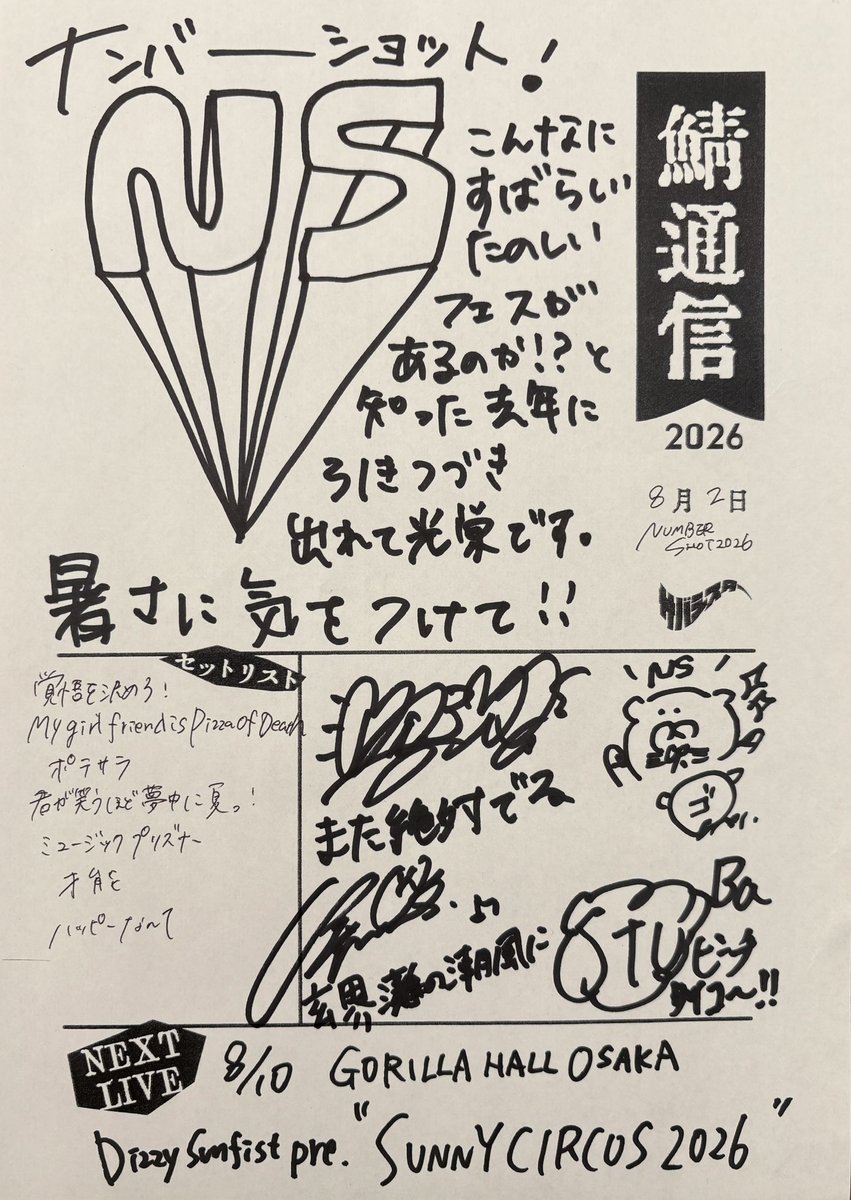 ナンバーショット!
NS
こんなに
すばらしい
たのしい
フェスが
あるのか!?と
知った去年に
引きつづき
出れて光栄です。
暑さに気をつけて!!
鯖通信
2026
8月2日
NUMBER
SHOT2026
サバシスター
セットリスト
覚悟を決めろ!
My girlfriend is Pizza Of Death
ポテサラ
君が笑うほど夢中に夏っ!
ミュージックプリズナー
才能を
ハッピーなんて
また絶対でる
NS
ゴ
玄界灘の潮風に
Ba
NEXT
LIVE
8/10 GORILLA HALL OSAKA
Dizzy Sunfist pre. "SUNNY CIRCUS 2026"